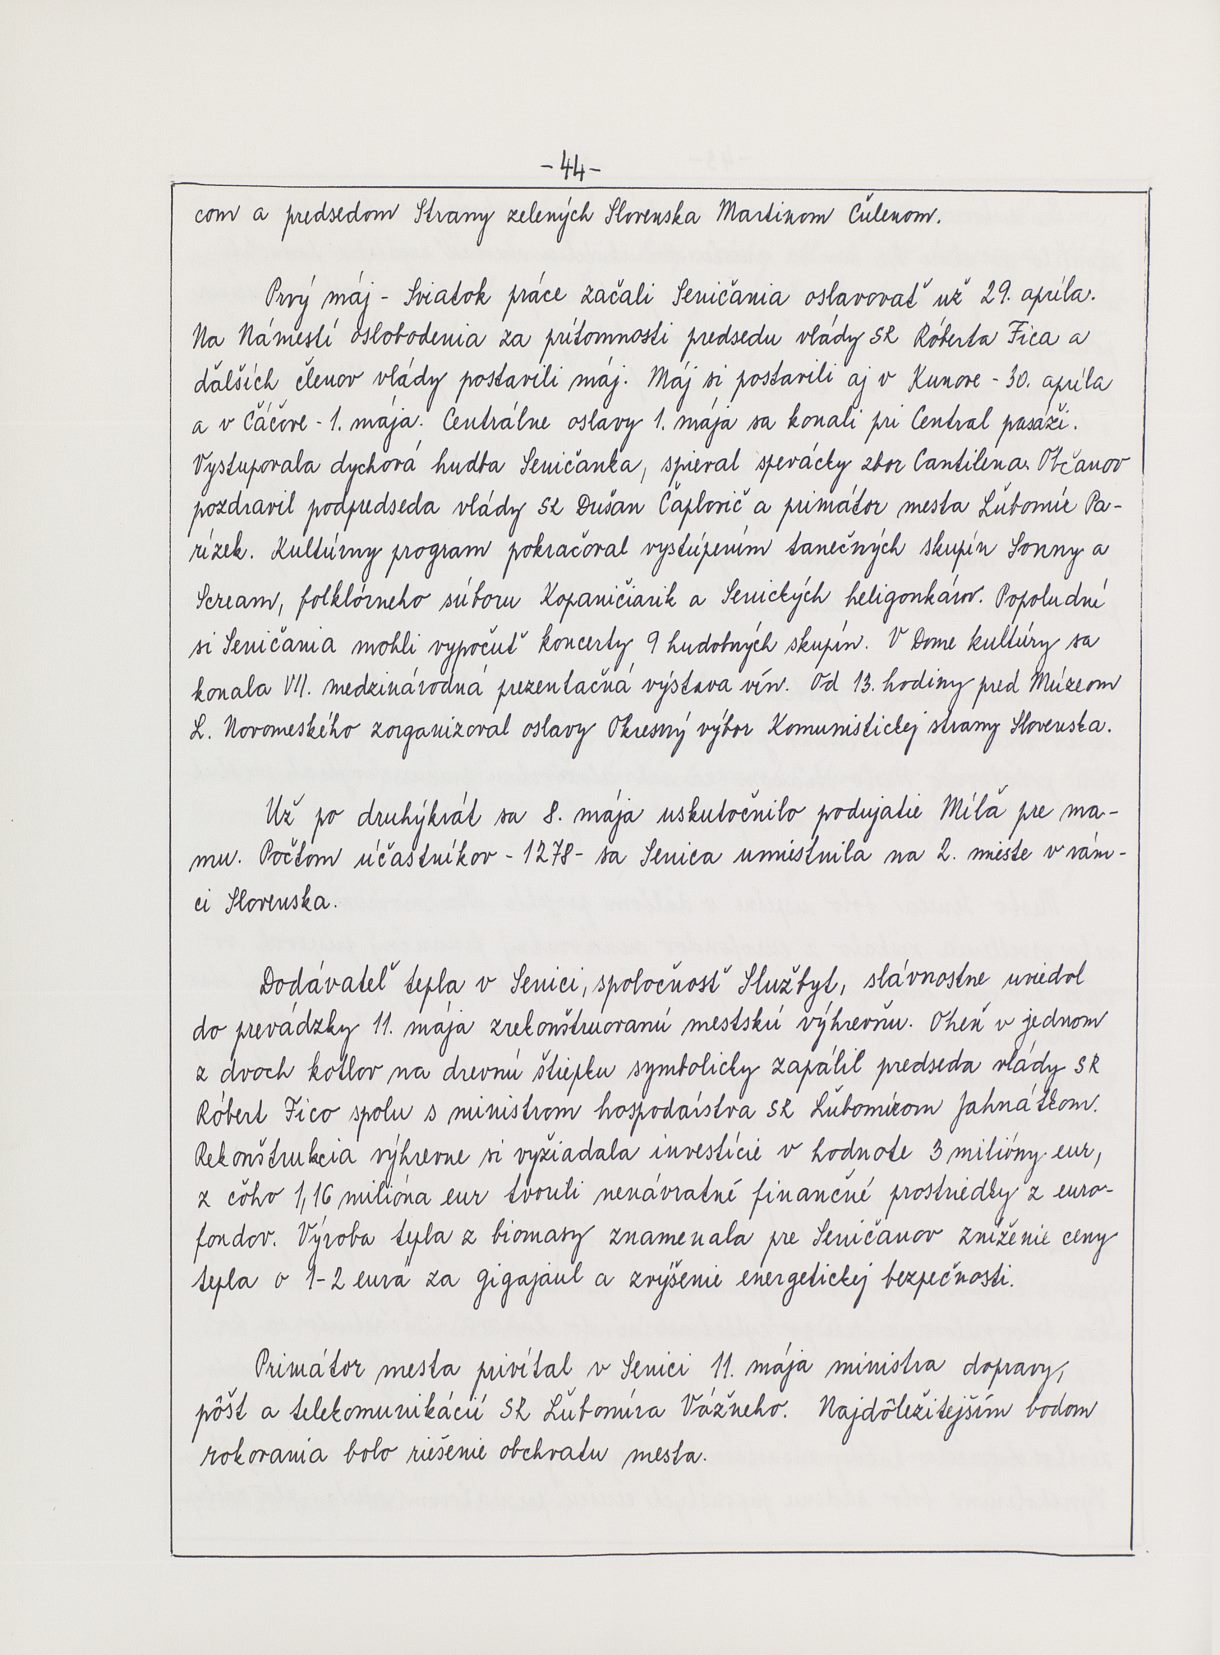 -44-
com a predsedom Strany zelených Slovenska Martinom Čulenom.
Prvý máj - Sviatok práce začali Seničania oslavovať už 29. apríla.
Na Námestí oslobodenia za prítomnosti predsedu vlády SR Róberta Fica a
ďalších členov vlády postavili máj. Máj si postavili aj v Kunove - 30. apríla
a v Čáčove - 1. mája. Centrálne oslavy 1. mája sa konali pri Central pasáži.
Vystupovala dychová hudba Seničanka, spieval spevácky zbor Cantilena. Občanov
pozdravil podpredseda vlády SR Dušan Čaplovič a primátor mesta Ľubomír Pa-
rízek. Kultúrny program pokračoval vystúpením tanečných skupín Sonny a
Scream, folklórneho súboru Kopaničiarik a Senických heligonkárov. Popoludní
si Seničania mohli vypočuť koncerty 9 hudobných skupín. V Dome kultúry sa
konala VII. medzinárodná prezentačná výstava vín. Od 13. hodiny pred Múzeom
L. Novomeského zorganizoval oslavy Okresný výbor Komunistickej strany Slovenska.
Už po druhýkrát sa 8. mája uskutočnilo podujatie Míľa pre ma-
mu. Počtom účastníkov - 1278 - sa Senica umiestnila na 2. mieste v rám-
ci Slovenska.
Dodávateľ tepla v Senici, spoločnosť Službyt, slávnostne uviedol
do prevádzky 11. mája zrekonštruovanú mestskú výhrevňu. Oheň v jednom
z dvoch kotlov na drevnú štiepku symbolicky zapálil predseda vlády SR
Róbert Fico spolu s ministrom hospodárstva SR Ľubomírom Jahnátkom.
Rekonštrukcia výhrevne si vyžiadala investície v hodnote 3 milióny eur,
z čoho 1,16 milióna eur tvorili nenávratné finančné prostriedky z euro-
fondov. Výroba tepla z biomasy znamenala pre Seničanov zníženie ceny
tepla o 1-2 eurá za gigajoul a zvýšenie energetickej bezpečnosti.
Primátor mesta privítal v Senici 11. mája ministra dopravy,
pôšt a telekomunikácií SR Ľubomíra Vážneho. Najdôležitejším bodom
rokovania bolo riešenie obchvatu mesta.